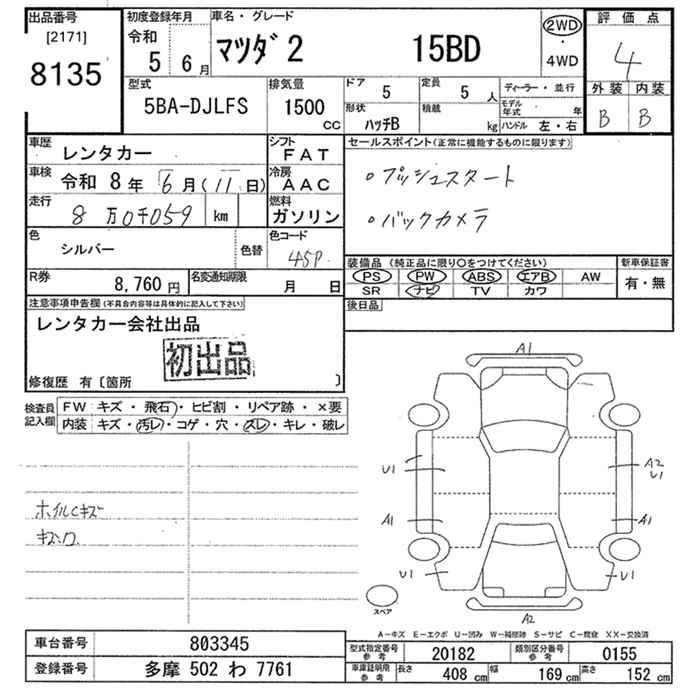 出品番号
[2171]
8135
初度登録年月
令和
5 6月
車名・グレード
マツダ2 15BD
2WD
・
4WD
評価点
4
外装 内装
B B
型式
5BA-DJLFS
排気量
1500
CC
ドア
5
定員
5 人
形状
ハッチB
積載
kg
ディーラー・並行
モデル年式 年
ハンドル 左・右
車歴
レンタカー
シフト
FAT
車検
令和 8年 6月(11日)
冷房
AAC
走行
8万0千059 km
燃料
ガソリン
色
シルバー
色替
色コード
45P
R券
8,760円
名変通知期限
月 日
セールスポイント(正常に機能するものに限ります)
○プッシュスタート
○バックカメラ
装備品(純正品に限り○をつけてください)
PS PW ABS エアB AW
SR ナビ TV カワ
新車保証書
有・無
後日品
注意事項申告欄(不具合内容等は具体的に記入して下さい)
レンタカー会社出品
初出品
修復歴 有〔箇所 〕
検査員
記入欄
FW キズ・飛石・ヒビ割・リペア跡・×要
内装 キズ・汚レ・コゲ・穴・スレ・キレ・破レ
ホイルCキズ
A1
U1
A2
U1
A1
A1
U1
U1
A2
スペア
A-キズ E-エクボ U-凹み W-補修跡 S-サビ C-腐食 XX-交換済
車台番号 803345
登録番号 多摩 502 わ 7761
型式指定番号
参考
20182
類別区分番号
参考
0155
車庫証明用
参考
長さ 408 cm 幅 169 cm 高さ 152 cm